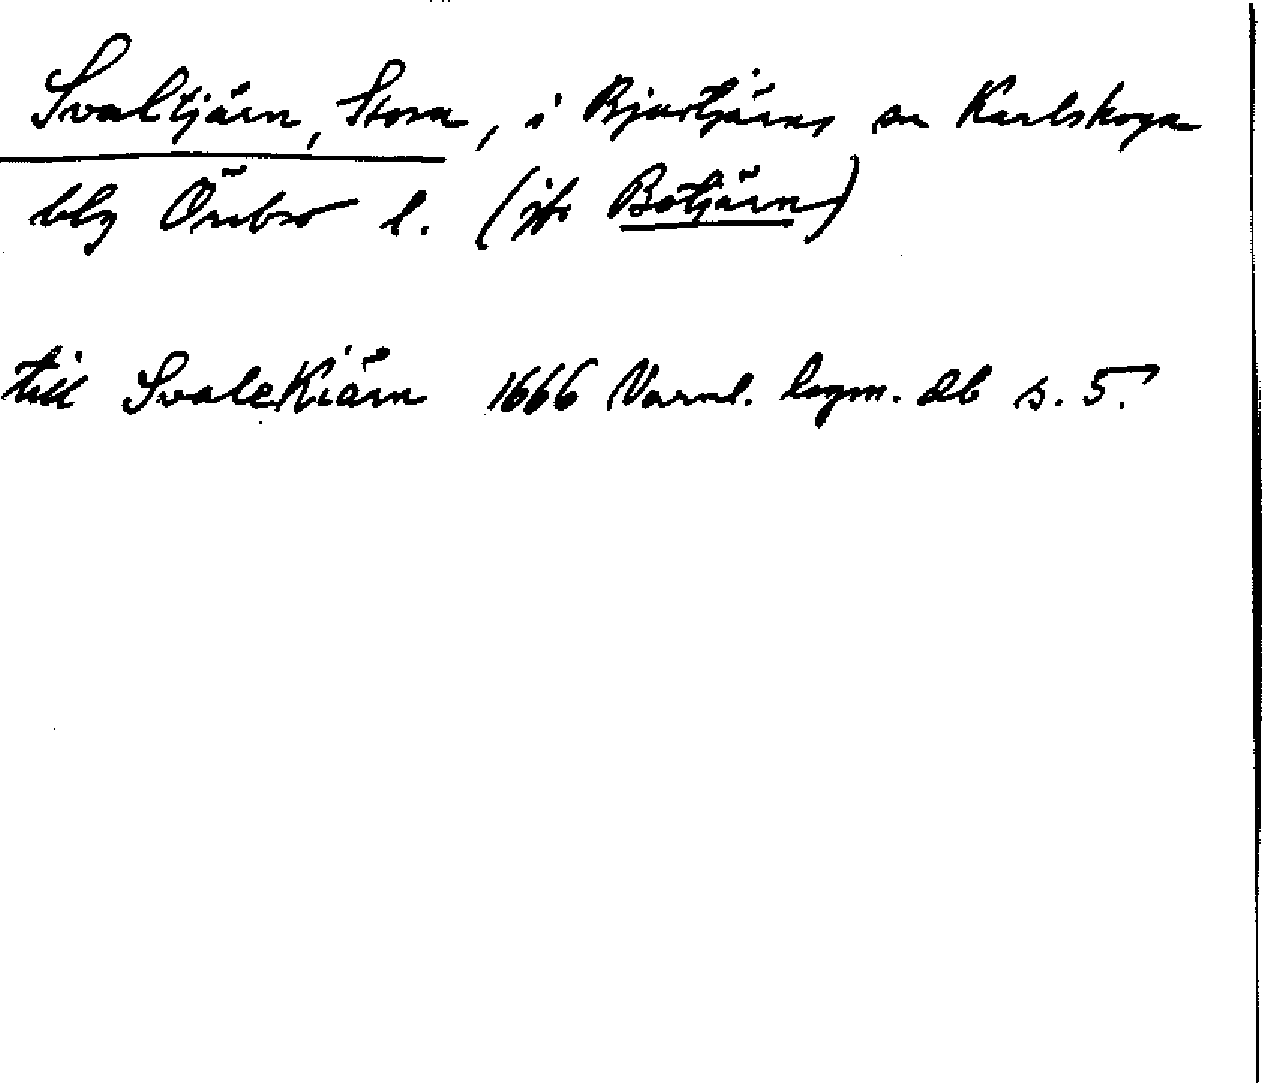 Svaltjärn, Stora, i Bjurtjärns sn Karlskoga
blg Örebro l. (jfr Botjärn)
till Svalekiärn 1666 Värml. lagm. db s. 5.